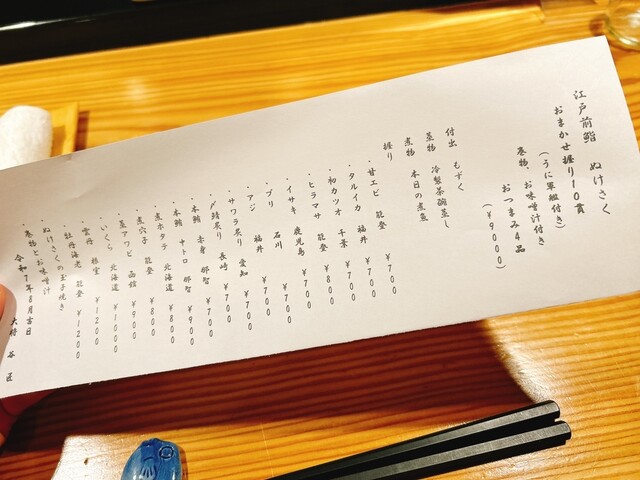 江戸前鮨 ぬけさく
おまかせ握り10貫
(うに軍艦付き)
巻物、お味噌汁付き
おつまみ4品
(¥9000)
付出 もずく
蒸物 冷製茶碗蒸し
煮物 本日の煮魚
握り
・甘エビ 能登 ¥700
・タルイカ 福井 ¥700
・初カツオ 千葉 ¥700
・ヒラマサ 能登 ¥800
・イサキ 鹿児島 ¥700
・ブリ 石川 ¥700
・アジ 福井 ¥700
・サワラ炙り 愛知 ¥700
・〆鯖炙り 長崎 ¥700
・本鮪 赤身 那智 ¥700
・本鮪 中トロ 那智 ¥900
・煮ホタテ 北海道 ¥800
・煮穴子 能登 ¥800
・蒸アワビ 函館 ¥900
・いくら 北海道 ¥1000
・雲丹 根室 ¥1200
・牡丹海老 能登 ¥1200
・ぬけさくの玉子焼き
・巻物とお味噌汁
令和7年8月吉日
大将 谷 匠